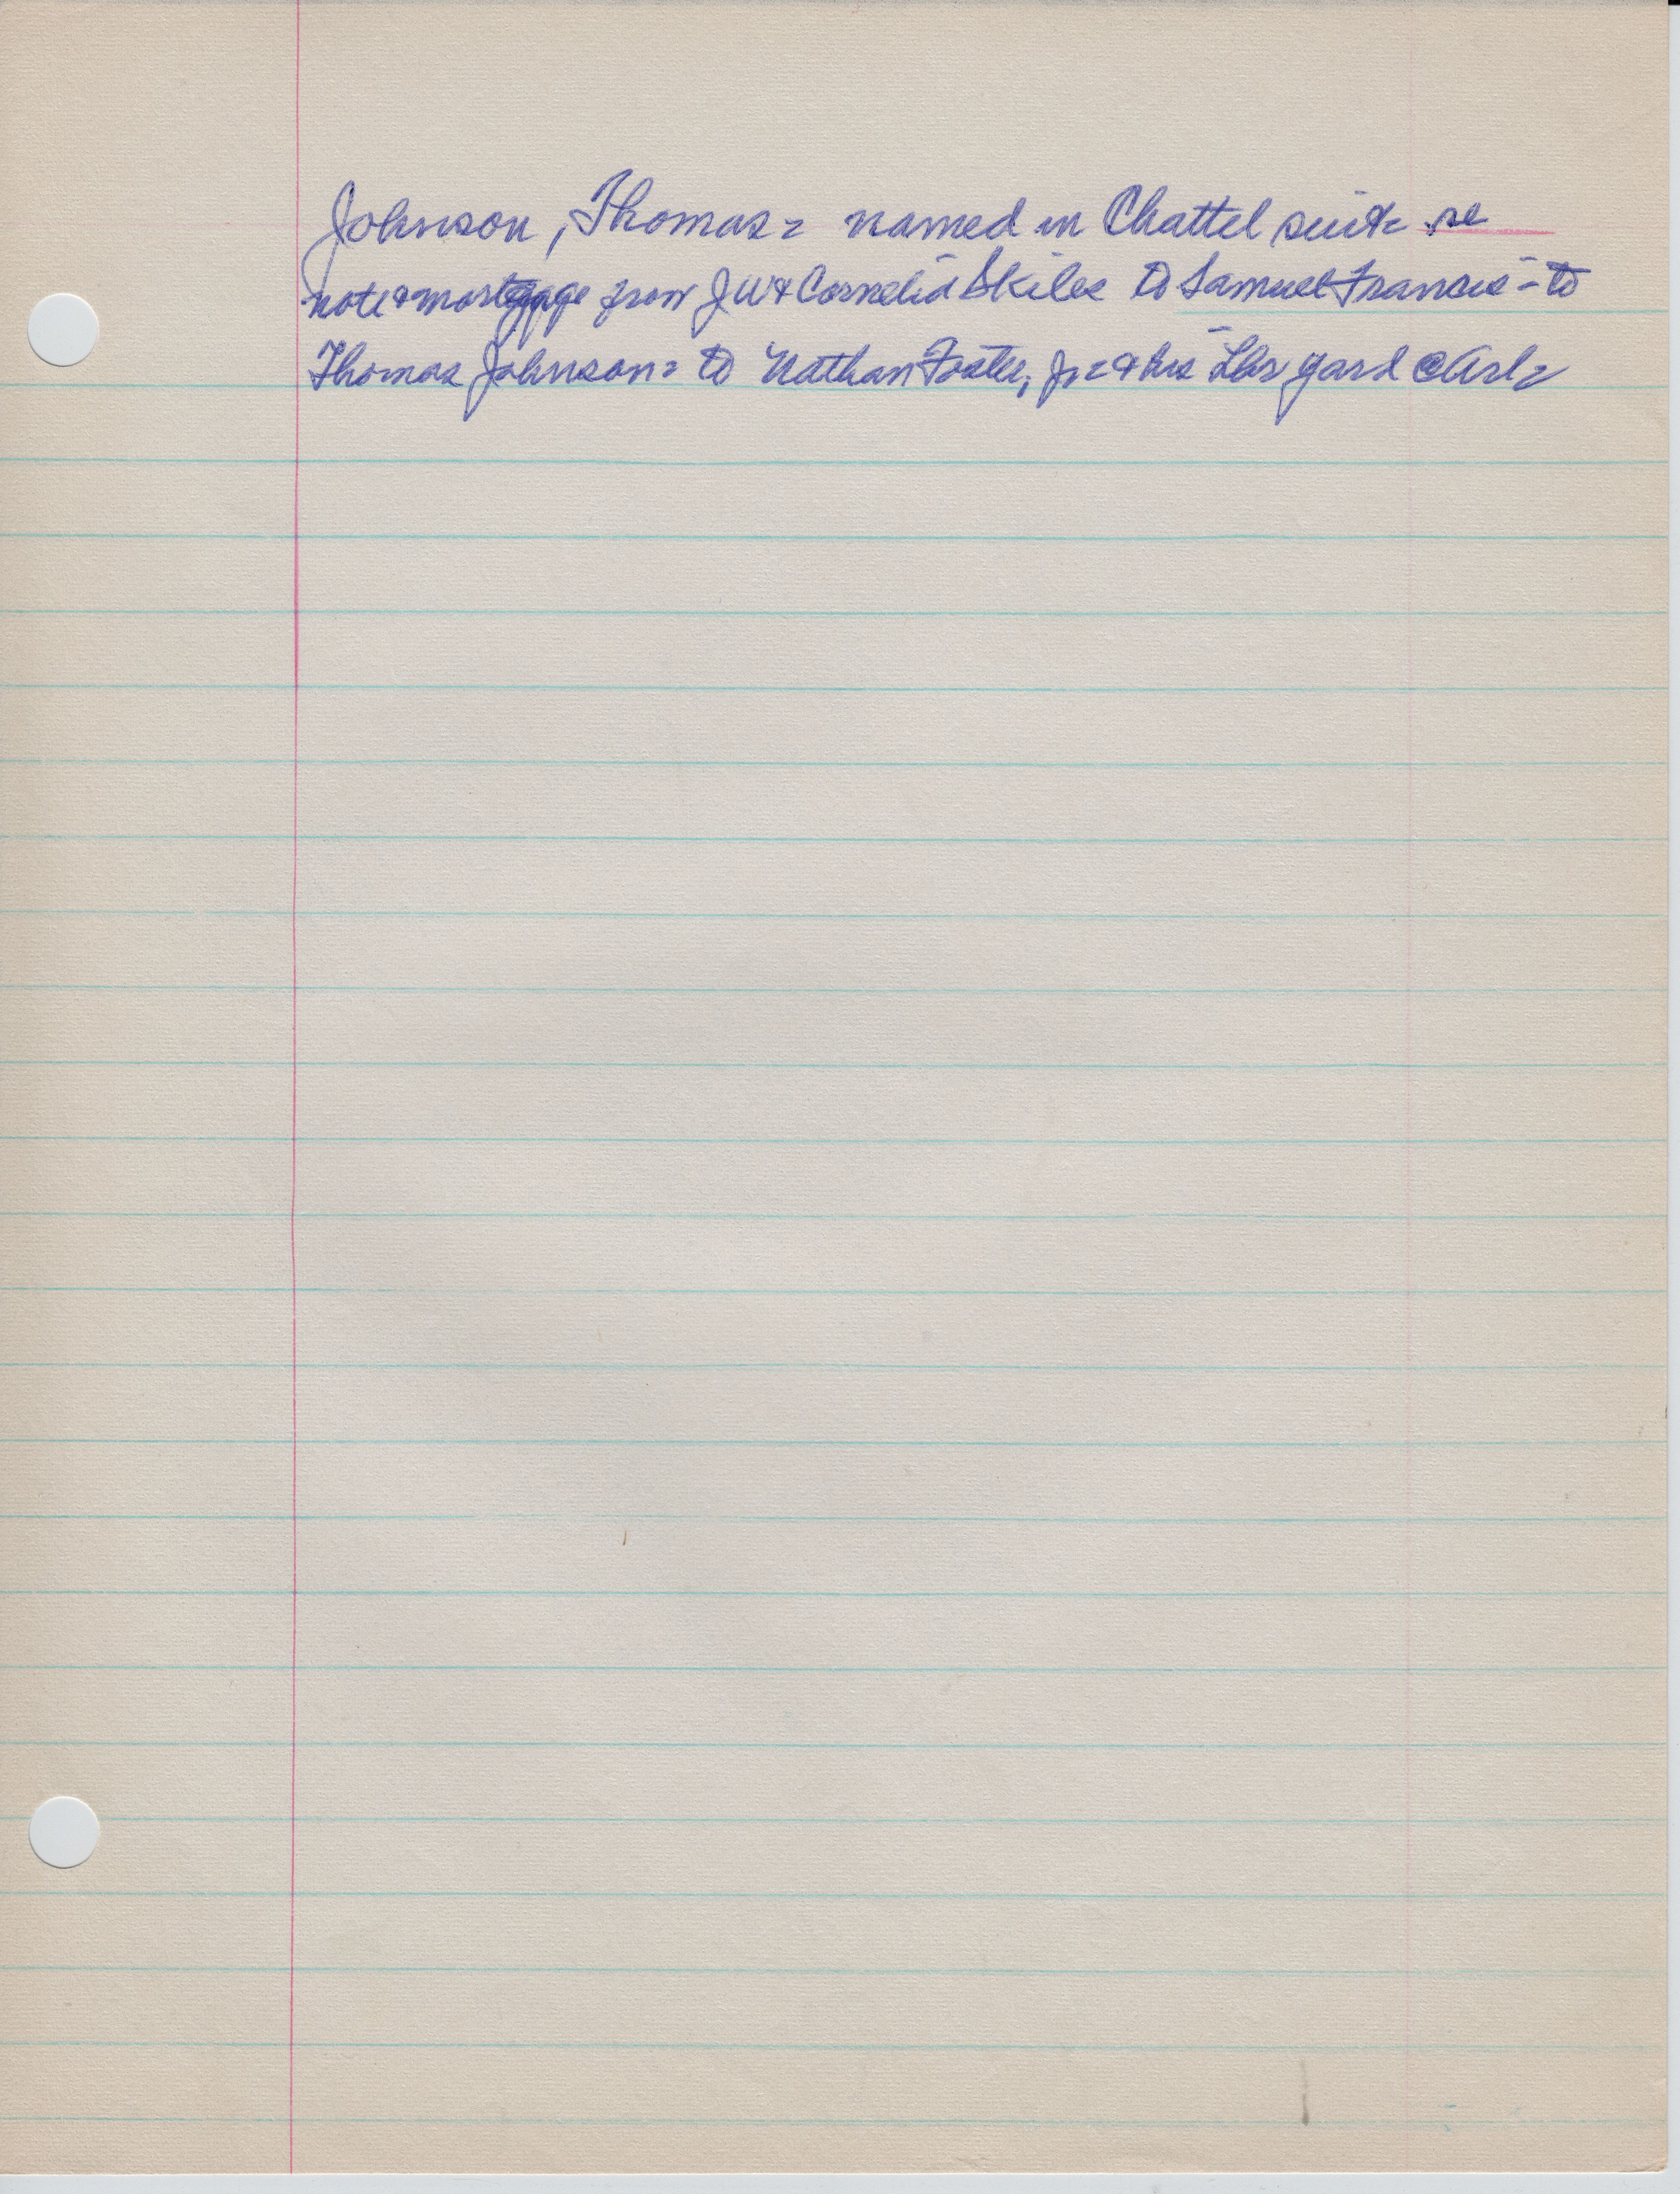 Johnson, Thomas = named in Chattel suit = re
note & mortgage from J W & Cornelia Skiles to Samuel Francis = to
Thomas Johnson = to Nathan Foster, Jr = & his Lbr yard @ Arl =